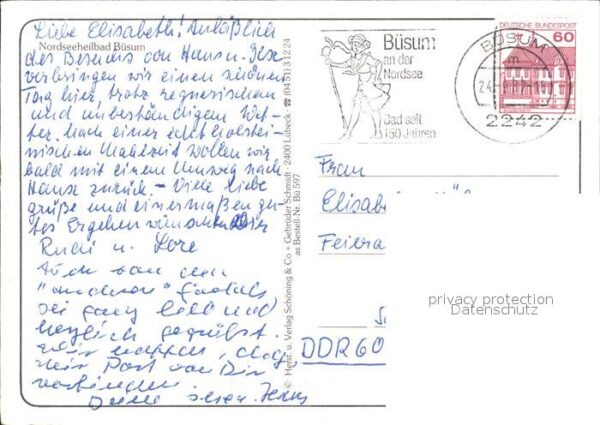 Nordseeheilbad Büsum
Liebe Elisabeth! Anläßlich
des Besuchs von Hans u. Ilse
verbringen wir einen schönen
Tag hier, trotz regnerischem
und unbeständigem Wet-
ter. Nach einer echt holstei-
nischen Mahlzeit wollen wir
bald mit einem Umweg nach
Hause zurück. – Viele liebe
Grüße und einermaßen gu-
tes Ergehen wünschen Dir
Rudi u. Lore
Auch von den
"anderen"
sei ganz lieb und
herzlich gegrüßt.
Wir hoffen, daß
von Dir
Deine Hans
© Herst. u. Verlag Schöning & Co + Gebrüder Schmidt · 2400 Lübeck · ☎ (0451) 31224
as Bestell-Nr. Bü 597
Büsum
an der
Nordsee
Bad seit
150 Jahren
BÜSUM
2242
DEUTSCHE BUNDESPOST
60
Frau
Elisabe
Feiera
DDR 60
privacy protection
Datenschutz